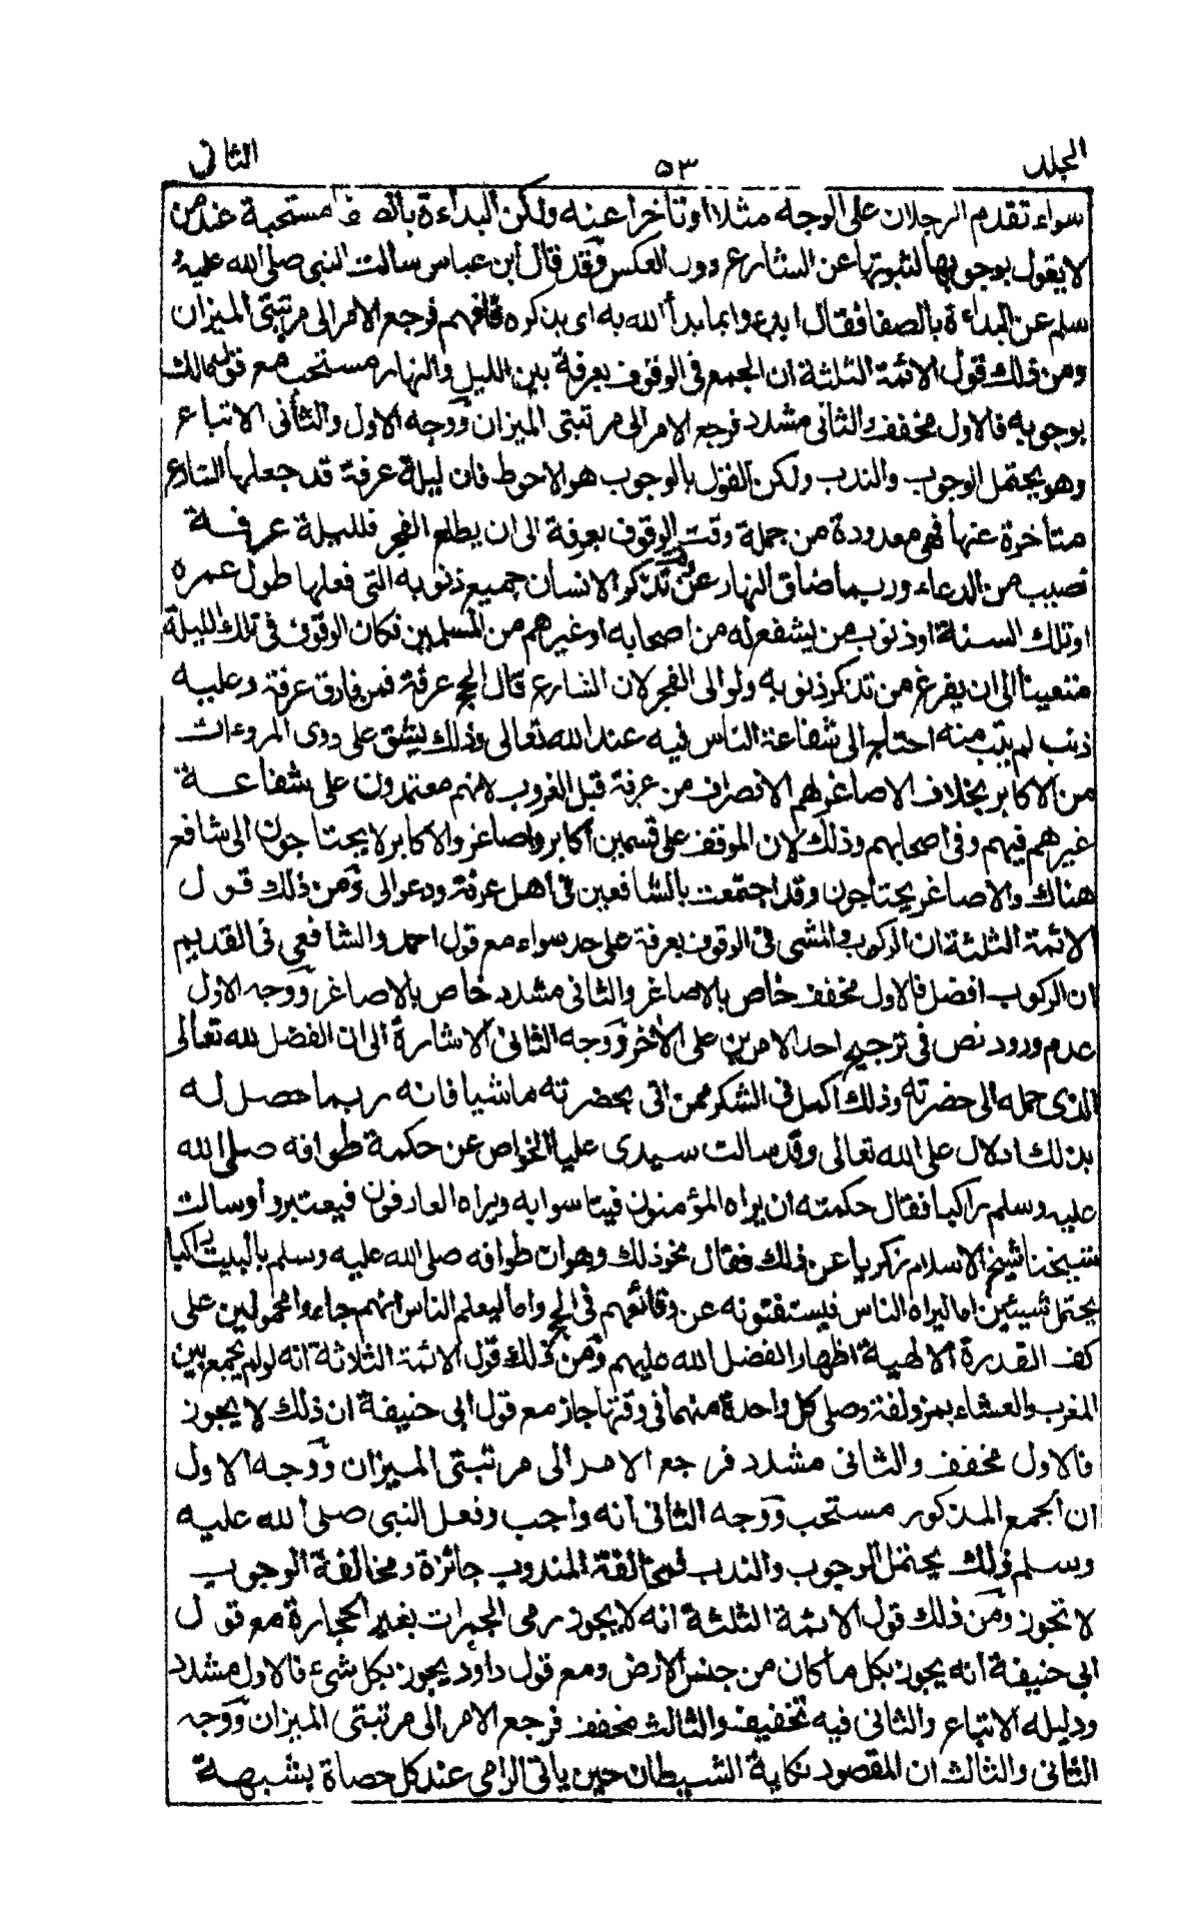 المجلد ٥٣ الثانى
سواء تقدم الرجلان على الوجه مثلا او تأخرا عنه ولكن البداءة بالصفا مستحبة عند من
لا يقول بوجوبها لثبوتها عن الشارع دون العكس وقد قال ابن عباس سالت النبى صلى الله عليه و
سلم عن البداءة بالصفا فقال ابدءوا بما بدأ الله به اى بذكره فافهم فرجع الامر الى مرتبتى الميزان
ومن ذلك قول الائمة الثلثة ان الجمع فى الوقوف بعرفة بين الليل والنهار مستحب مع قول مالك
بوجوبه فالاول مخفف والثانى مشدد فرجع الامر الى مرتبتى الميزان ووجه الاول والثانى الاتباع
وهو يحتمل الوجوب والندب ولكن القول بالوجوب هو الاحوط فان ليلة عرفة قد جعلها الشارع
متأخرة عنها فهى معدودة من جملة وقت الوقوف بعرفة الى ان يطلع الفجر فلليلة عرفة
نصيب من الدعاء وربما ضاق النهار عن تذكر الانسان جميع ذنوبه التى فعلها طول عمره
او تلك السنة او ذنوب من يشفع له من اصحابه او غيرهم من المسلمين فكان الوقوف فى تلك الليلة
متعينا الى ان يفرغ من تذكر ذنوبه ولو الى الفجر لان الشارع قال الحج عرفة فمن فارق عرفة وعليه
ذنب لم يتب منه احتاج الى شفاعة الناس فيه عند الله تعالى وذلك يشق على ذوى المروءات
من الاكابر بخلاف الاصاغر لهم الانصراف من عرفة قبل الغروب لانهم معتمدون على شفاعة
غيرهم فيهم وفى اصحابهم وذلك لان الموقف على قسمين اكابر واصاغر والاكابر لا يحتاجون الى شافع
هناك والاصاغر يحتاجون وقد اجتمعت بالشافعين فى اهل عرفة ودعوا لى ومن ذلك قول
الائمة الثلثة ان الركوب والمشى فى الوقوف بعرفة على حد سواء مع قول احمد والشافعى فى القديم
ان الركوب افضل فالاول مخفف خاص بالاصاغر والثانى مشدد خاص بالاصاغر ووجه الاول
عدم ورود نص فى ترجيح احد الامرين على الآخر ووجه الثانى الاشارة الى ان الفضل لله تعالى
الذى حمله الى حضرته وذلك اكمل فى الشكر ممن اتى بحضرته ماشيا فانه ربما حصل له
بذلك ادلال على الله تعالى وقد سالت سيدى عليا الخواص عن حكمة طوافه صلى الله
عليه وسلم راكبا فقال حكمته ان يراه المؤمنون فيتاسوا به ويراه العارفون فيعتبروا وسالت
شيخنا شيخ الاسلام زكريا عن ذلك فقال نحو ذلك وهو ان طوافه صلى الله عليه وسلم بالبيت راكبا
يحتمل شيئين اما ليراه الناس فيستفتونه عن وقائعهم فى الحج واما ليعلم الناس انهم جاءوا محمولين على
كف القدرة الالهية اظهارا لفضل الله عليهم ومن ذلك قول الائمة الثلاثة انه لو لم يجمع بين
المغرب والعشاء بمزدلفة وصلى كل واحدة منهما فى وقتها جاز مع قول ابى حنيفة ان ذلك لا يجوز
فالاول مخفف والثانى مشدد فرجع الامر الى مرتبتى الميزان ووجه الاول
ان الجمع المذكور مستحب ووجه الثانى انه واجب وفعل النبى صلى الله عليه
وسلم ذلك يحتمل الوجوب والندب فمخالفة المندوب جائزة ومخالفة الوجوب
لا تجوز ومن ذلك قول الائمة الثلثة انه لا يجوز رمى الجمرات بغير الحجارة مع قول
ابى حنيفة انه يجوز بكل ما كان من جنس الارض ومع قول داود يجوز بكل شىء فالاول مشدد
ودليله الاتباع والثانى فيه تخفيف والثالث مخفف فرجع الامر الى مرتبتى الميزان ووجه
الثانى والثالث ان المقصود نكاية الشيطان حين ياتى الرامى عند كل حصاة بشبهة